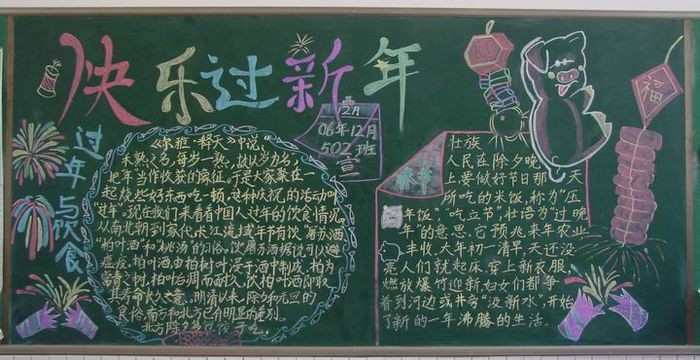 快乐过新年
12月
06年12月
502班
宣
福
过年与饮食
《尔雅·释天》中说,
禾熟之名,每岁一熟,故以岁为名,
把年当作收获的象征。于是大家聚在一
起烧些好东西吃一顿,这种庆祝的活动叫
"过年"。现在我们来看看中国人过年的饮食情况。
从南北朝到宋代,长江流域年节有饮"屠苏酒"
"柏叶酒"和"桃汤"的习俗。饮屠苏酒据说可以避
瘟疫。柏叶酒由柏树叶浸于酒中制成,柏为
常青之树,柏叶后凋而耐久,饮柏叶酒即取
其寿命长久之意。明清以来,除夕和元旦的
食俗,南方和北方已有明显的差别。
北方除夕
壮族
人民在除夕晚
上要做好节日那一天
所吃的米饭,称为"压
年饭"、"吃立节",壮语为"过晚
年"的意思,它预兆来年农业
丰收。大年初一清早天还没
亮,人们就起床,穿上新衣服、
燃放爆竹迎新,妇女们都争
着到河边或井旁"汲新水",开始
了新的一年沸腾的生活。